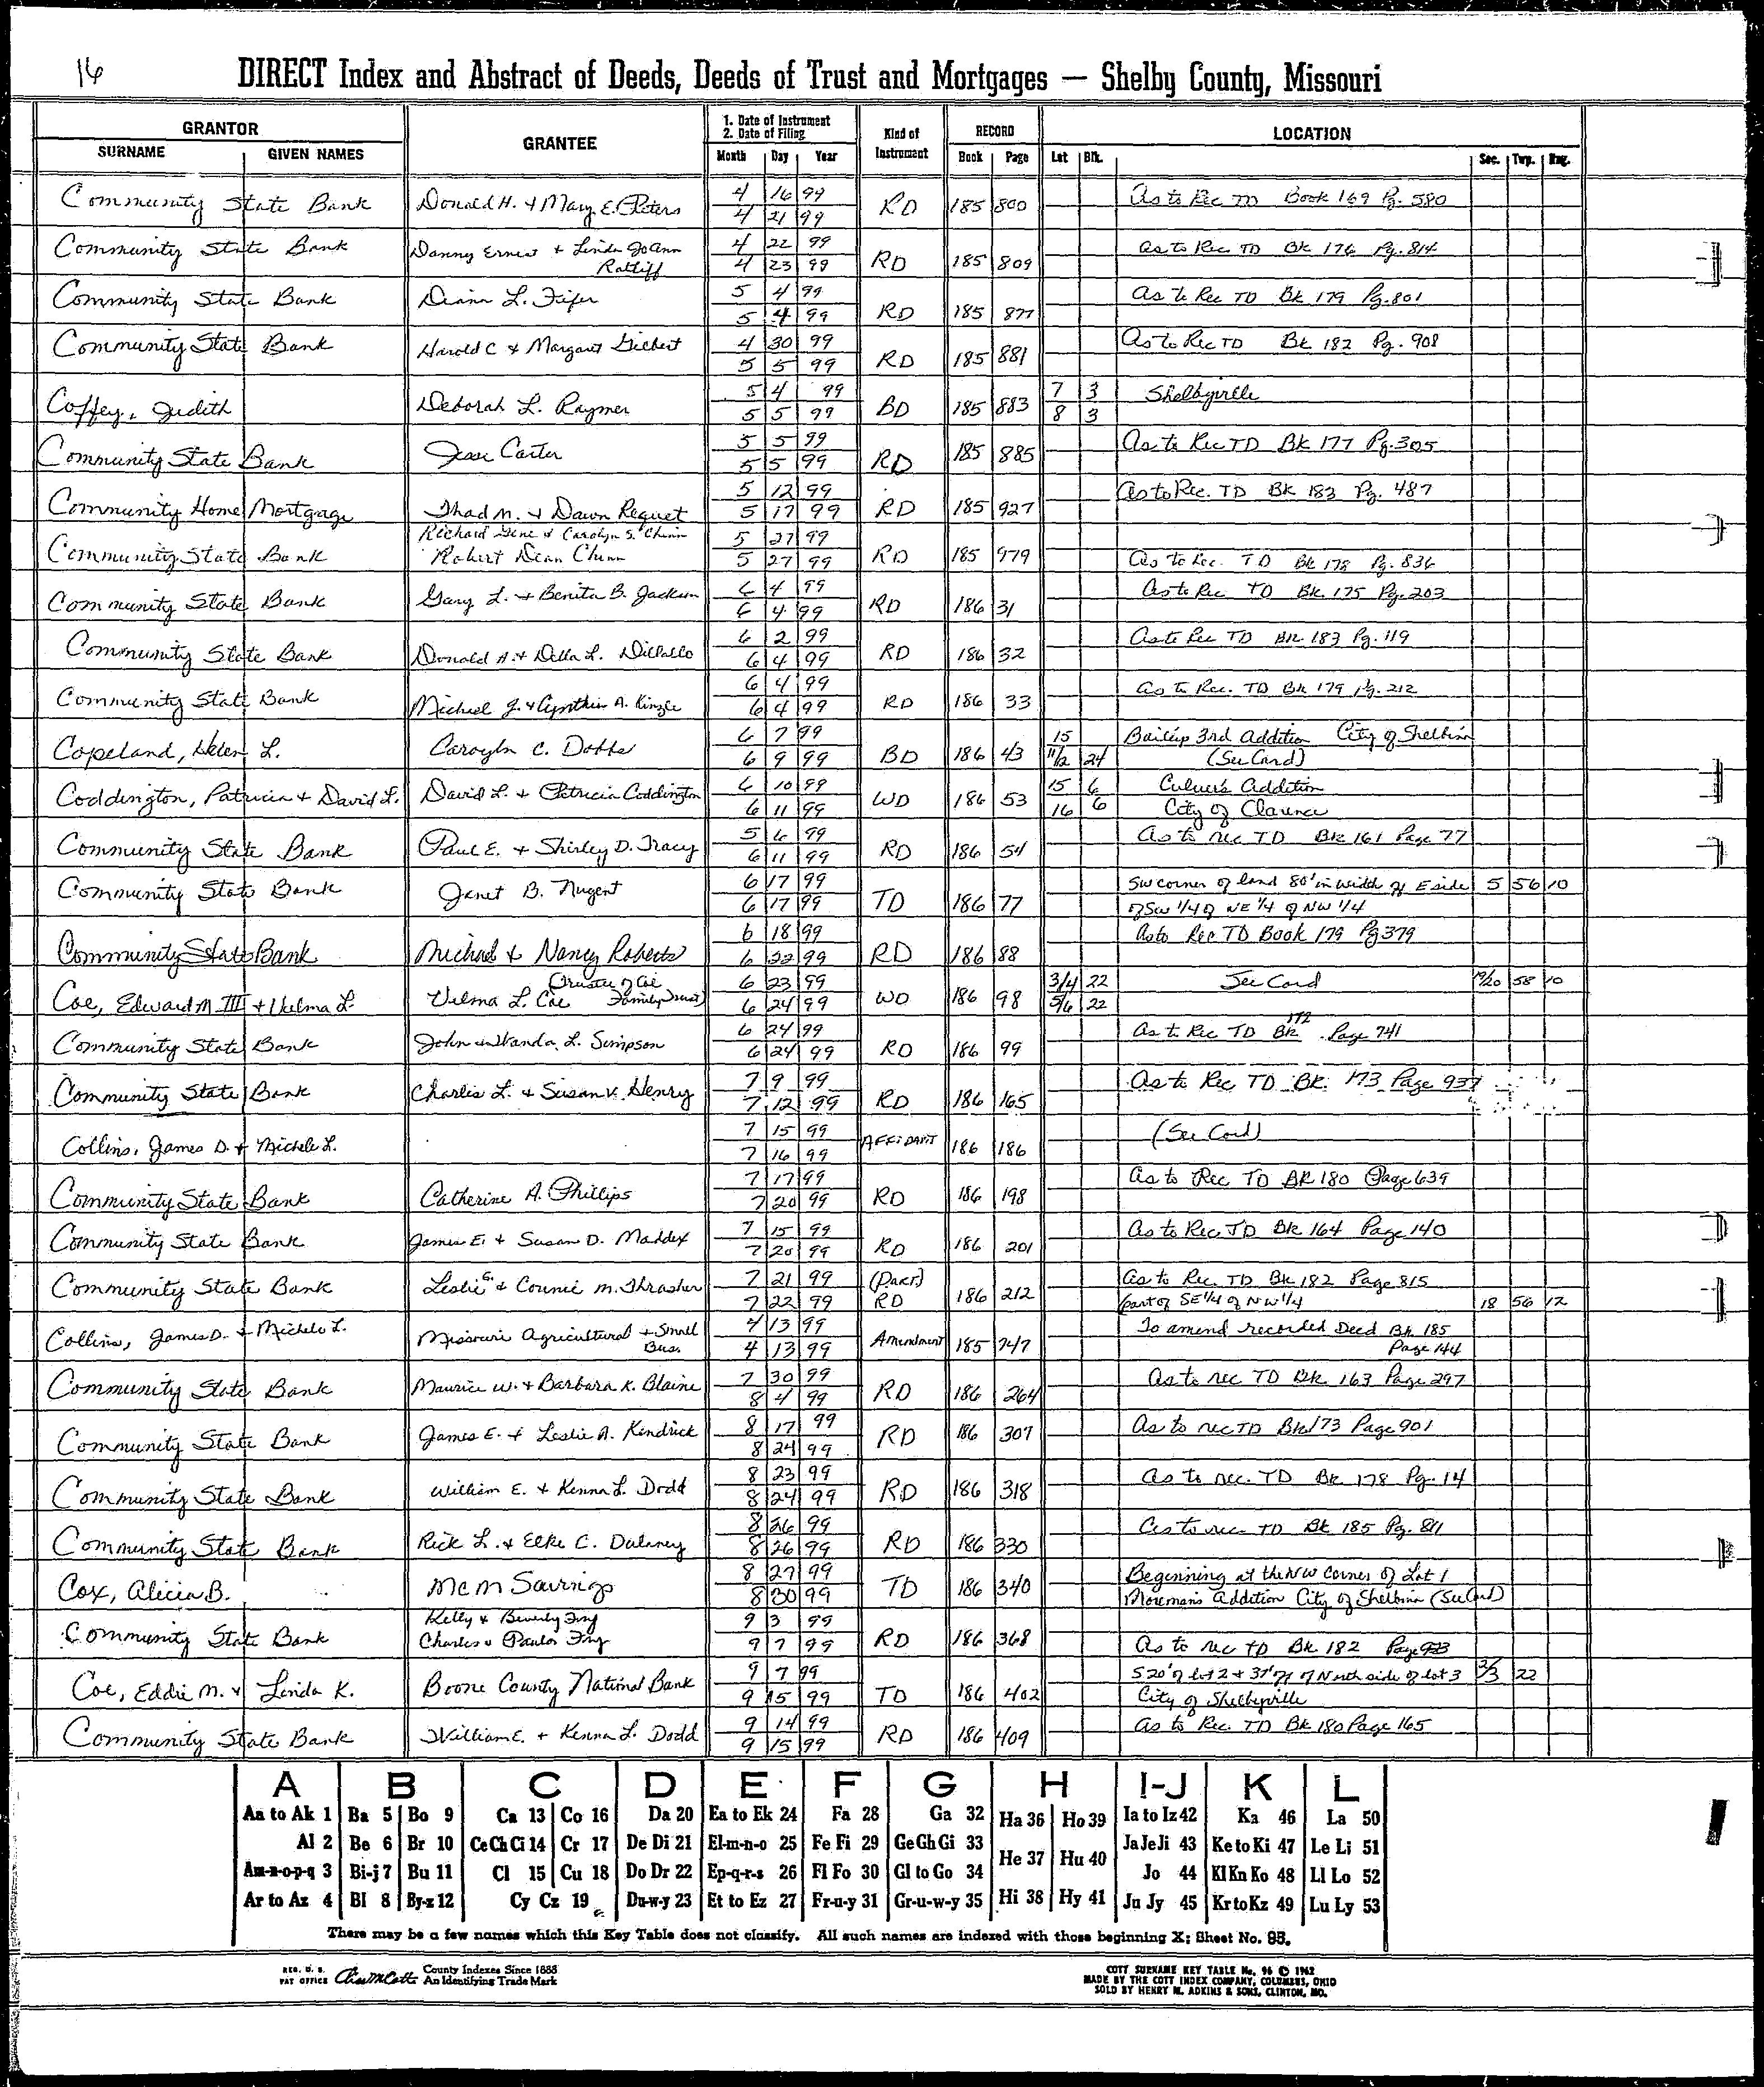 16
DIRECT Index and Abstract of Deeds, Deeds of Trust and Mortgages — Shelby County, Missouri
GRANTOR GRANTEE 1. Date of Instrument 2. Date of Filing Kind of Instrument RECORD LOCATION
SURNAME GIVEN NAMES Month Day Year Book Page Lot Blk. Sec. Twp. Rng.
Community State Bank Donald H. & Mary E. Peters 4 16 99 RD 185 800 As to Rec Book 169 Pg. 580
4 21 99
Community State Bank Danny Ernest & Linda JoAnn 4 22 99 RD 185 809 As to Rec TD Bk 176 Pg. 814
Ratliff 4 23 99
Community State Bank Diann L. Fifer 5 4 99 RD 185 877 As to Rec TD Bk 179 Pg. 801
5 4 99
Community State Bank Harold C & Margaret 4 30 99 RD 185 881 As to Rec TD Bk 182 Pg. 908
5 5 99
Coffey, Judith Deborah L. Raymer 5 4 99 BD 185 883 7 3 Shelbyville
5 5 99 8 3
Community State Bank Carter 5 5 99 RD 185 885 As to Rec TD Bk 177 Pg. 305
5 5 99
Community Home Mortgage Thad M. & Dawn Requet 5 12 99 RD 185 927 As to Rec. TD Bk 183 Pg. 487
5 17 99
Community State Bank Richard Gene & Carolyn S. Chinn 5 27 99 RD 185 979
Robert Dean Chinn 5 27 99 As to Rec. TD Bk 178 Pg. 836
Community State Bank Gary L. & Benita B. Jackson 6 4 99 RD 186 31 As to Rec TD Bk. 175 Pg. 203
6 4 99
Community State Bank Donald A. & Della L. 6 2 99 RD 186 32 As to Rec TD Bk. 183 Pg. 119
6 4 99
Community State Bank Michael J. & Cynthia A. Kinzle 6 4 99 RD 186 33 As to Rec. TD Bk 179 Pg. 212
6 4 99
Copeland, Helen L. Caroyln C. Dobbs 6 7 99 BD 186 43 15 3rd Addition City of Shelbina
6 9 99 11/2 24 (See Card)
Coddington, Patricia & David L. David L. & Patricia Coddington 6 10 99 WD 186 53 15 6 Culver's Addition
6 11 99 16 6 City of Clarence
Community State Bank Paul E. & Shirley D. Tracy 5 6 99 RD 186 54 As to rec TD Bk 161 Page 77
6 11 99
Community State Bank Janet B. Nugent 6 17 99 TD 186 77 SW corner of land 80' in width of E side 5 56 10
6 17 99 of SW 1/4 of NE 1/4 of NW 1/4
Community State Bank Michael & Nancy Roberts 6 18 99 RD 186 88 As to Rec TD Book 179 Pg 379
6 22 99
Coe, Edward M. III & Velma L. Velma L. Coe Trustee of Coe Family Trust 6 23 99 WD 186 98 3/4 22 See Card 19/20 58 10
6 24 99 5/6 22
Community State Bank John & Wanda L. Simpson 6 24 99 RD 186 99 As to Rec TD Bk 172 Page 741
6 24 99
Community State Bank Charles L. & Susan V. Henry 7 9 99 RD 186 165 As to Rec TD Bk. 173 Page 937
7 12 99
Collins, James D. & Michele L. 7 15 99 AFFIDAVIT 186 186 (See Card)
7 16 99
Community State Bank Catherine A. Phillips 7 17 99 RD 186 198 As to Rec TD BK 180 Page 639
7 20 99
Community State Bank James E. & Susan D. Maddex 7 15 99 RD 186 201 As to Rec TD Bk 164 Page 140
7 20 99
Community State Bank Leslie G. & Connie M. Thrasher 7 21 99 (Part) RD 186 212 As to Rec. TD Bk 182 Page 815
7 22 99 part of SE 1/4 of NW 1/4 18 56 12
Collins, James D. & Michele L. Missouri Agricultural & Small Bus. 4 13 99 Amendment 185 747 To amend recorded Deed Bk 185
4 13 99 Page 144
Community State Bank Maurice W. & Barbara K. Blaine 7 30 99 RD 186 264 As to rec TD Bk 163 Page 297
8 4 99
Community State Bank James E. & Leslie A. Kendrick 8 17 99 RD 186 307 As to rec TD Bk 173 Page 901
8 24 99
Community State Bank William E. & Kenna L. Dodd 8 23 99 RD 186 318 As to rec. TD Bk 178 Pg. 14
8 24 99
Community State Bank Rick L. & Elke C. Dulaney 8 26 99 RD 186 330 As to rec TD Bk 185 Pg. 811
8 26 99
Cox, Alicia B. MCM Savings 8 27 99 TD 186 340 Beginning at the NW Corner of Lot 1
8 30 99 Moreman's Addition City of Shelbina (See Card)
Community State Bank Kelly & Beverly 9 3 99 RD 186 368
Charles & 9 7 99 As to rec TD Bk 182 Page
Coe, Eddie M. & Linda K. Boone County National Bank 9 7 99 TD 186 402 S 20' of lot 2 & of North side of lot 3 2/3 22
9 15 99 City of Shelbyville
Community State Bank William E. & Kenna L. Dodd 9 14 99 RD 186 409 As to Rec. TD Bk 180 Page 165
9 15 99
A B C D E F G H I-J K L
Aa to Ak 1 Ba 5 Bo 9 Ca 13 Co 16 Da 20 Ea to Ek 24 Fa 28 Ga 32 Ha 36 Ho 39 Ia to Iz 42 Ka 46 La 50
Al 2 Be 6 Br 10 Ce Ch Ci 14 Cr 17 De Di 21 El-m-n-o 25 Fe Fi 29 Ge Gh Gi 33 He 37 Hu 40 Ja Je Ji 43 Ke to Ki 47 Le Li 51
Am-n-o-p-q 3 Bi-j 7 Bu 11 Cl 15 Cu 18 Do Dr 22 Ep-q-r-s 26 Fl Fo 30 Gl to Go 34 Jo 44 Kl Kn Ko 48 Ll Lo 52
Ar to Az 4 Bl 8 By-z 12 Cy Cz 19 Du-w-y 23 Et to Ez 27 Fr-u-y 31 Gr-u-w-y 35 Hi 38 Hy 41 Ju Jy 45 Kr to Kz 49 Lu Ly 53
There may be a few names which this Key Table does not classify. All such names are indexed with those beginning X; Sheet No. 95.
REG. U. S. PAT OFFICE County Indexes Since 1888 An Identifying Trade Mark
COTT SURNAME KEY TABLE No. 96 © 1962
MADE BY THE COTT INDEX COMPANY, COLUMBUS, OHIO
SOLD BY HENRY M. ADKINS & SONS, CLINTON, MO.